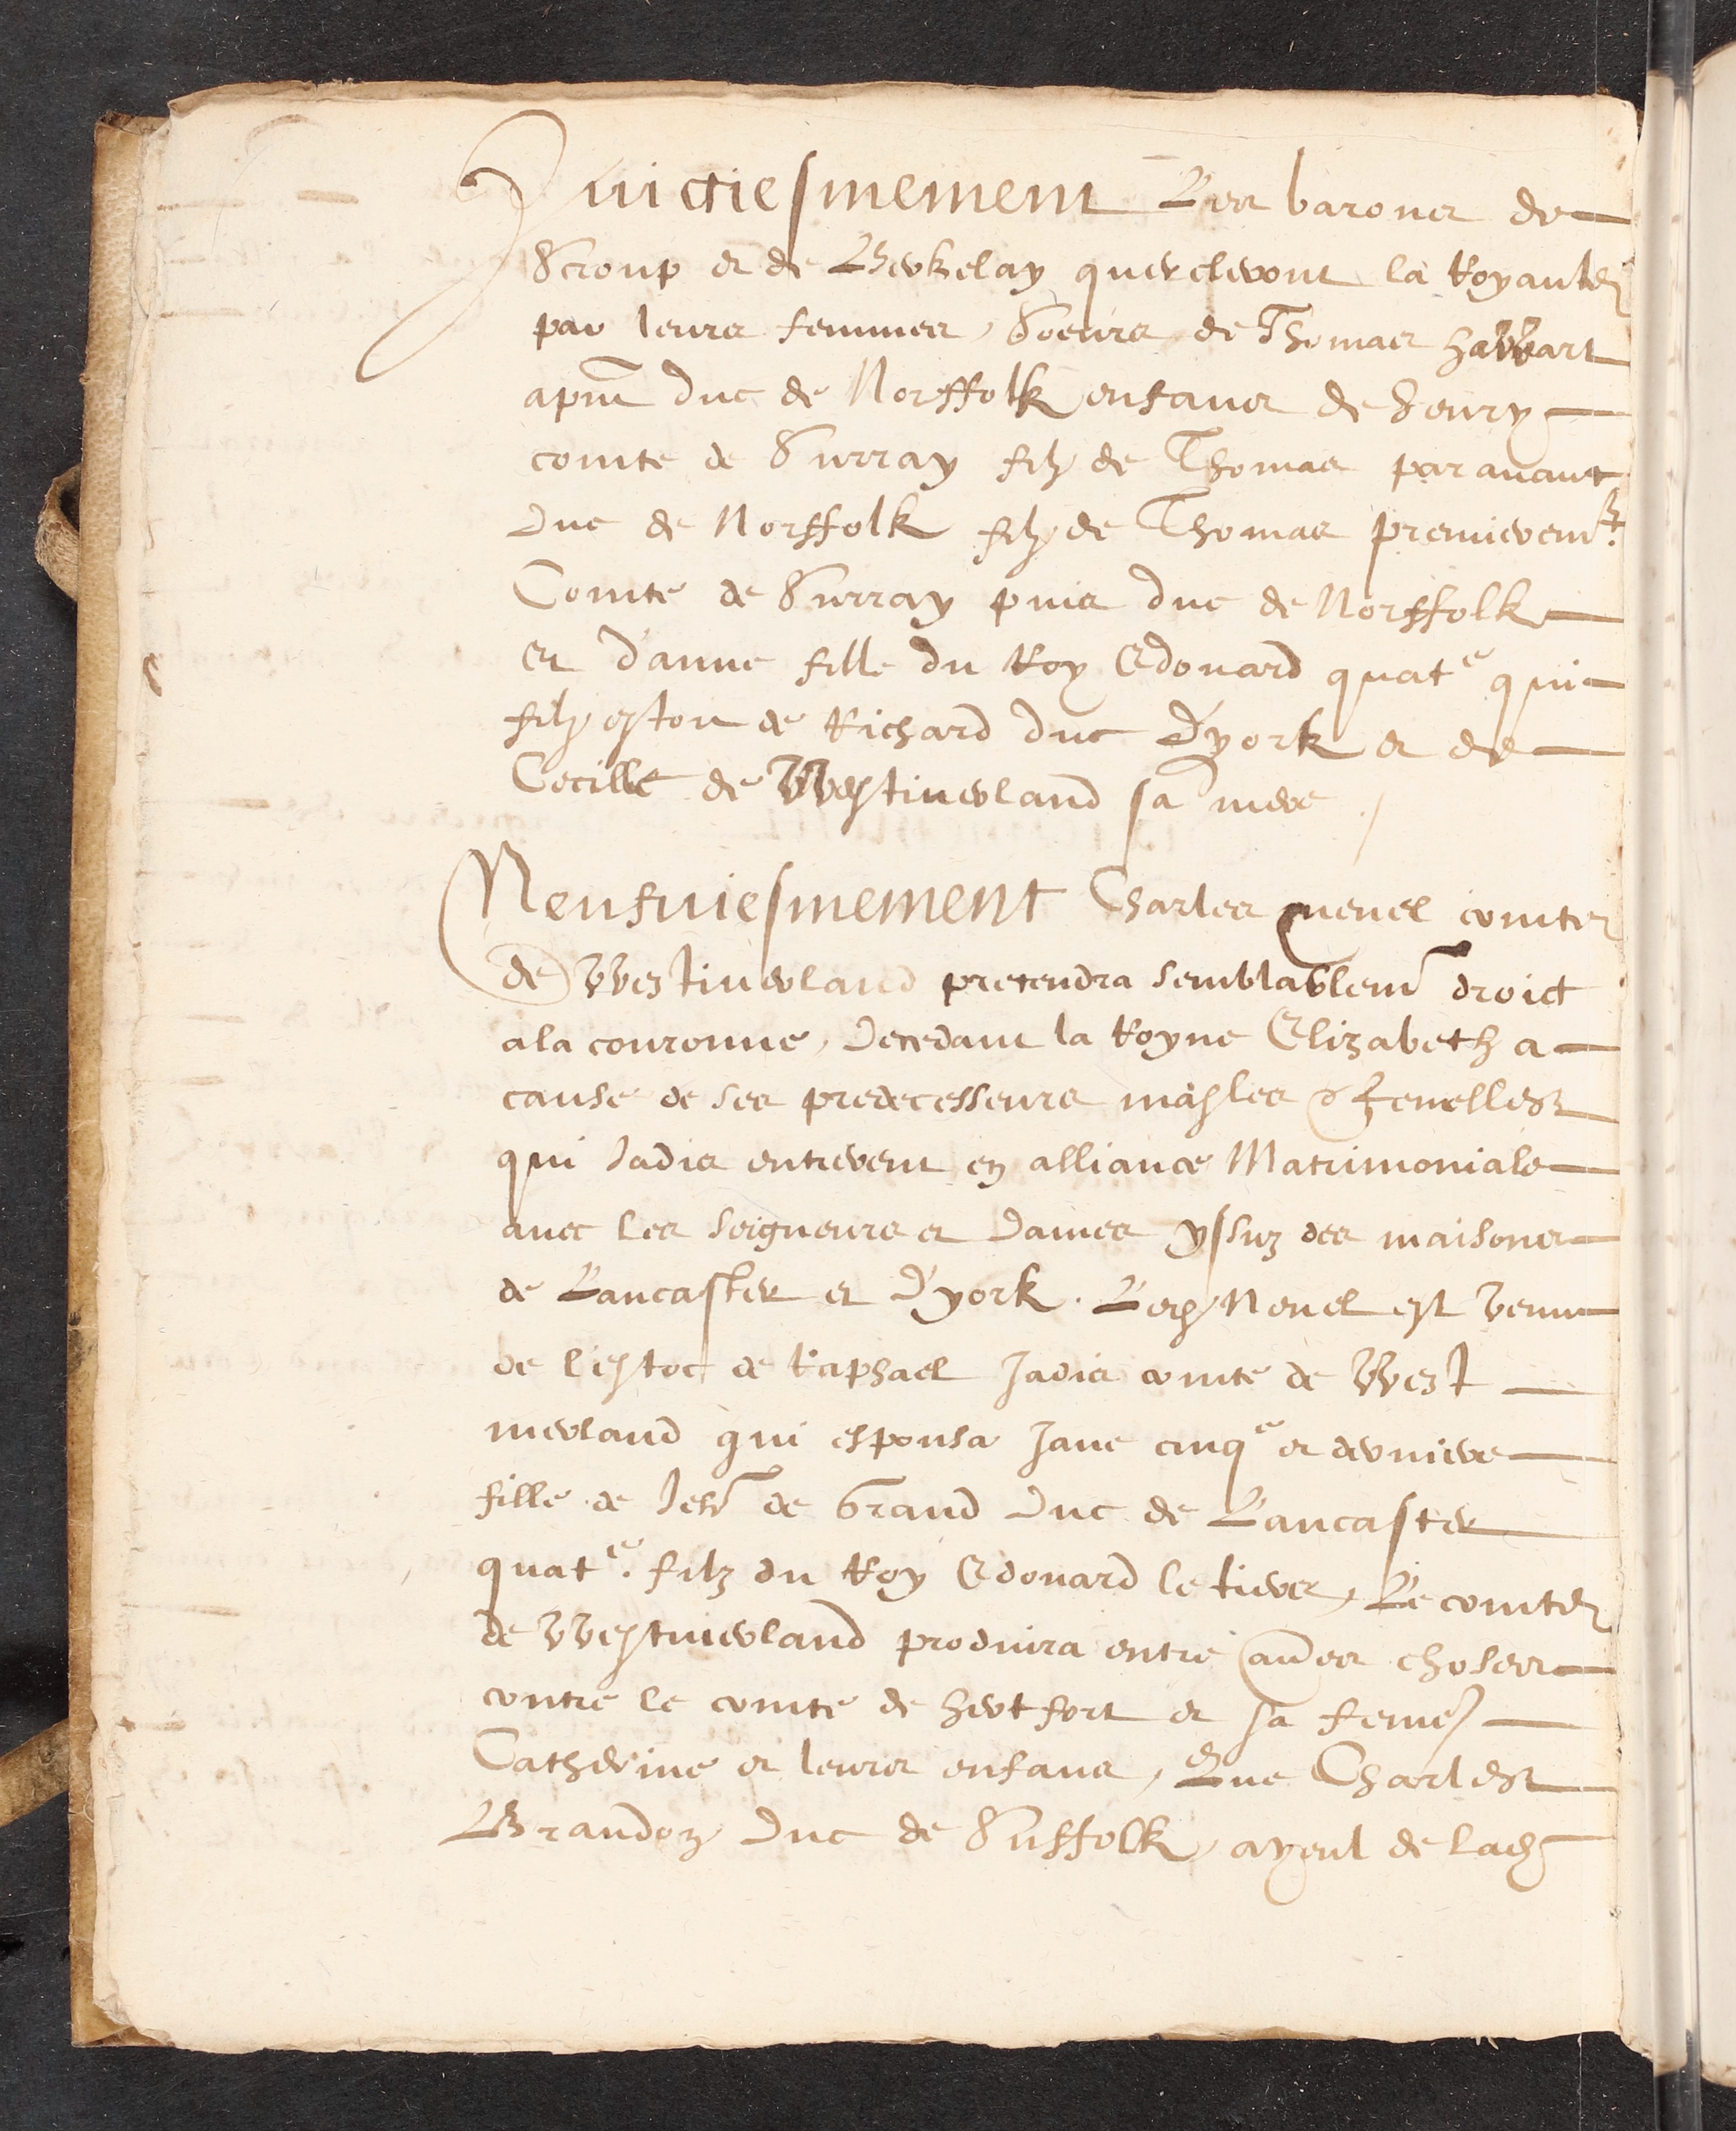 Huictiesmement Les barons de
Scroup et de Berkelay querelleront la Royaulté
par leurs femmes, Soeurs de Thomas haWart
apnt duc de Norffolk enfans de henry
comte de Surray filz de Thomas paravant
duc de Norffolk filz de Thomas premieremt.
Comte de Surray puis duc de Norffolk
et d'anne fille du Roy Edouard quat.e qui
filz estoit de Richard duc D'york et de
Cecille de Westmerland sa mere ./
Neufviesmement Charles nevel comte
de Westmerland pretendra semblablemt droict
a la couronne, decedant la Royne Elizabeth a
cause de ses predecesseurs masles & femelles
qui Jadis entrerent en alliance Matrimoniale
avec les seigneurs et dames yssuz des maisons
de Lancaster et D'york. Led. Nevel est venu
de l'estoc de Raphael Jadis comte de West
merland qui espousa Jane cinq.e et derniere
fille de Jeh de Grand duc de Lancaster
quat.e filz du Roy Edouard le tiers, Le comte
de Westmerland produira entre autres choses
contre le comte de hertfort et sa feme
Catherine et leurs enfans, Que Charles
Brandon duc de Suffolk, ayeul de lad.